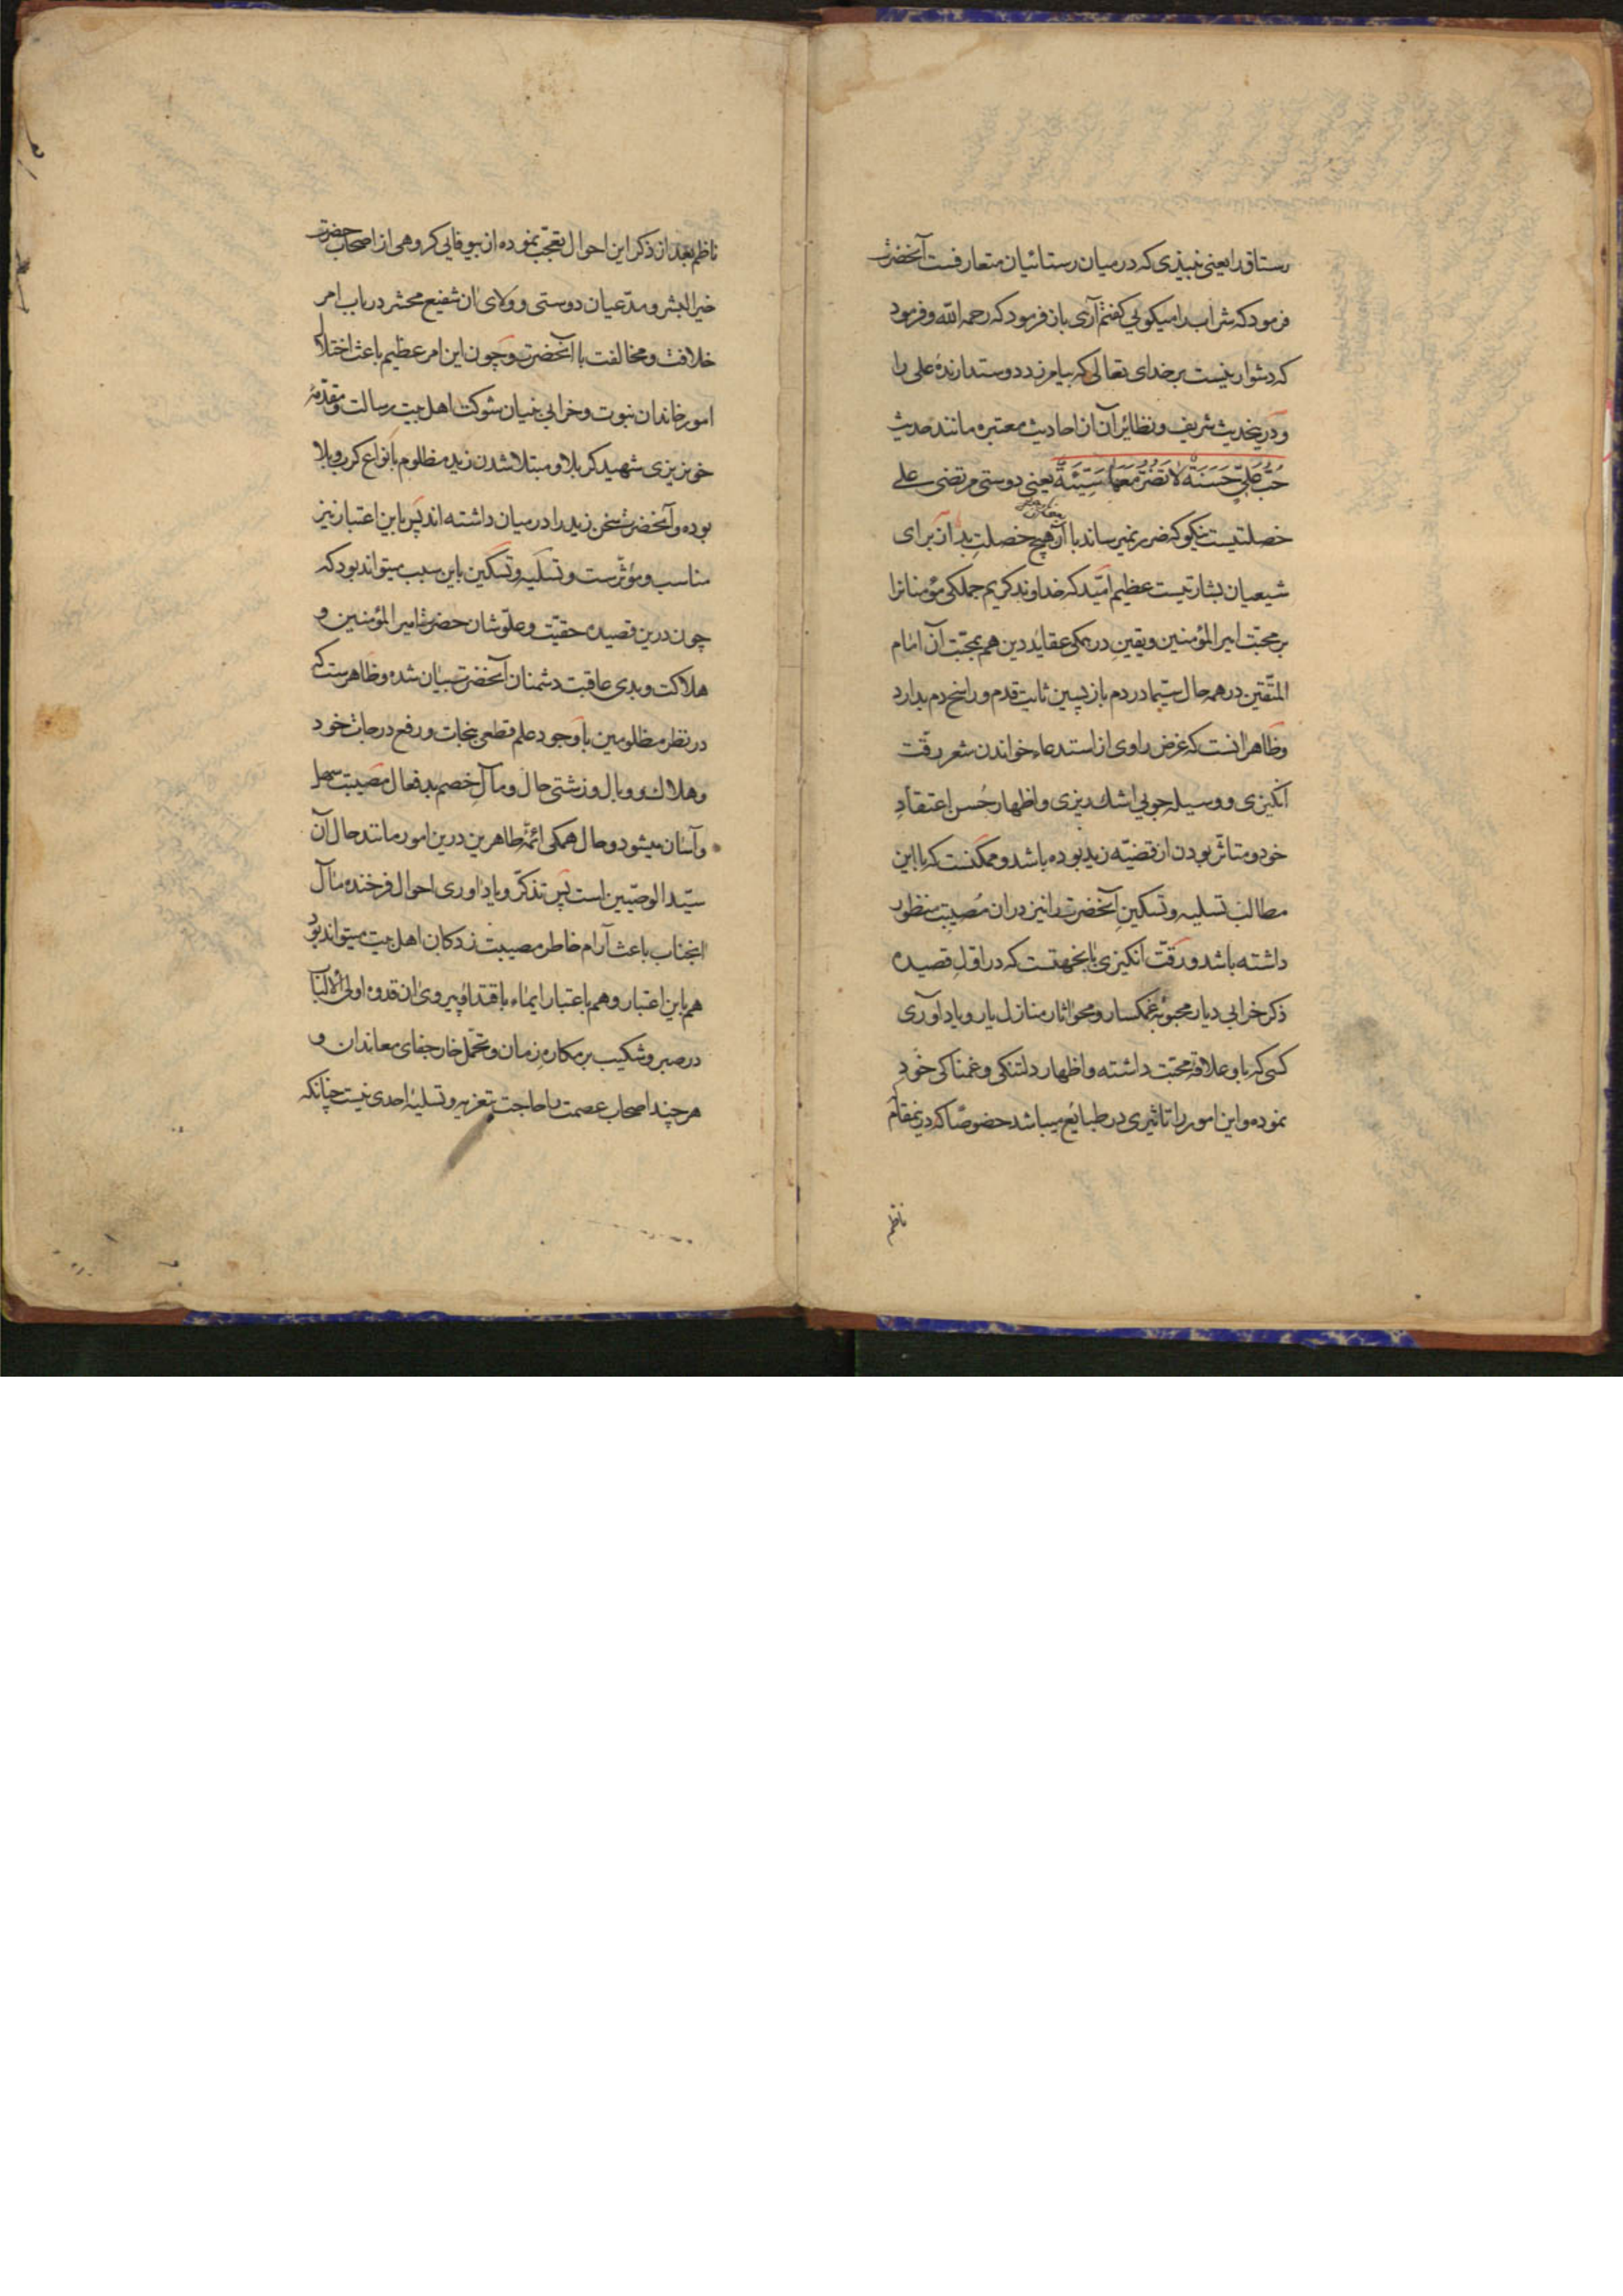 رستاق را یعنی نبیذی که در میان رستائیان متعارفست آنحضرت
فرمود که شراب را میکویی کفتم آری باز فرمود که رحمه الله و فرمود
که دشوار نیست بر خدای تعالی که بیامرزد دوستدارنده علی را
و درینحدیث شریف و نظائر آن از احادیث معتبره مانند حدیث
حُبُّ عَلِیٍّ حَسَنَةٌ لا تَضُرُّ مَعَها سَیِّئَةٌ یعنی دوستی مرتضی علی
خصلتیست نیکو که ضرر نمیرساند با آن هیچ خصلت بد از برای
شیعیان بشارتیست عظیم امّید که خداوند کریم جملکی مؤمنانرا
بر محبّت امیرالمؤمنین و یقین در همکی عقاید دین هم بمحبّت آن امام
المتّقین در همه حال سیّما در دم باز پسین ثابت قدم و راسخ دم بدارد
و ظاهر انست که غرض راوی از استدعاء خواندن شعر رقّت
انکیزی و وسیله جویی اشک ریزی و اظهار حُسن اعتقادِ
خود و متاثّر بودن از قضیّه زید بوده باشد و ممکنست که با این
مطالب تسلیه و تسکینِ آنحضرت را نیز دران مُصیبت منظور
داشته باشد و رقّت انکیزی باینجهتست که در اوّلِ قصیده
ذکر خرابی دیار محبوبهٔ غمکسار و محو اثار منازل یار و یاد آوری
کسی که باو علاقهٔ محبّت داشته و اظهار دلتنکی و غمناکی خود
نموده و این امور را تاثیری در طبائع میباشد خصوصًا که درینمقام
ناظم
ناظم بعد از ذکر این احوال تعجّب نموده از بیوفایی کروهی از اصحاب حضرت
خیر البشر و مدّعیان دوستی و ولای ان شفیع محشر در باب امر
خلافت و مخالفت با آنحضرت و چون این امر عظیم باعث اختلال
امور خاندان نبوت و خرابی بنیان شوکت اهل بیت رسالت و مقدّمهٔ
خونریزی شهید کربلا و مبتلا شدن زید مظلوم بانواع کرب و بلا
بوده و آنحضرت سخن زید را در میان داشته اند پس باین اعتبار نیز
مناسب و مؤثّرست و تسلیه و تسکین باین سبب میتواند بود که
چون درین قصیده حقیّت و علوّ شان حضرت امیر المؤمنین و
هلاکت و بدی عاقبت دشمنان آنحضرت بیان شده و ظاهرست که
در نظر مظلومین با وجود علم قطعی بنجات و رفع درجات خود
و هلاک و وبال و زشتی حال و مآلِ خصم بدفعال مصیبت سهل
و آسان میشود و حال همکی ائمّهٔ طاهرین درین امور مانند حال آن
سیّد الوصیّین است پس تذکّر و یاد اوری احوال فرخنده مآل
انجناب باعث آرام خاطر مصیبت زدکان اهل بیت میتواند بود
هم باین اعتبار و هم باعتبار ایماء باقتدا و پیروی ان قدوه اولی الألباب
در صبر و شکیب بر مکاره زمان و تحمّل خار جفای معاندان و
هر چند اصحاب عصمت را حاجت بتعزیه و تسلیهٔ احدی نیست چنانکه